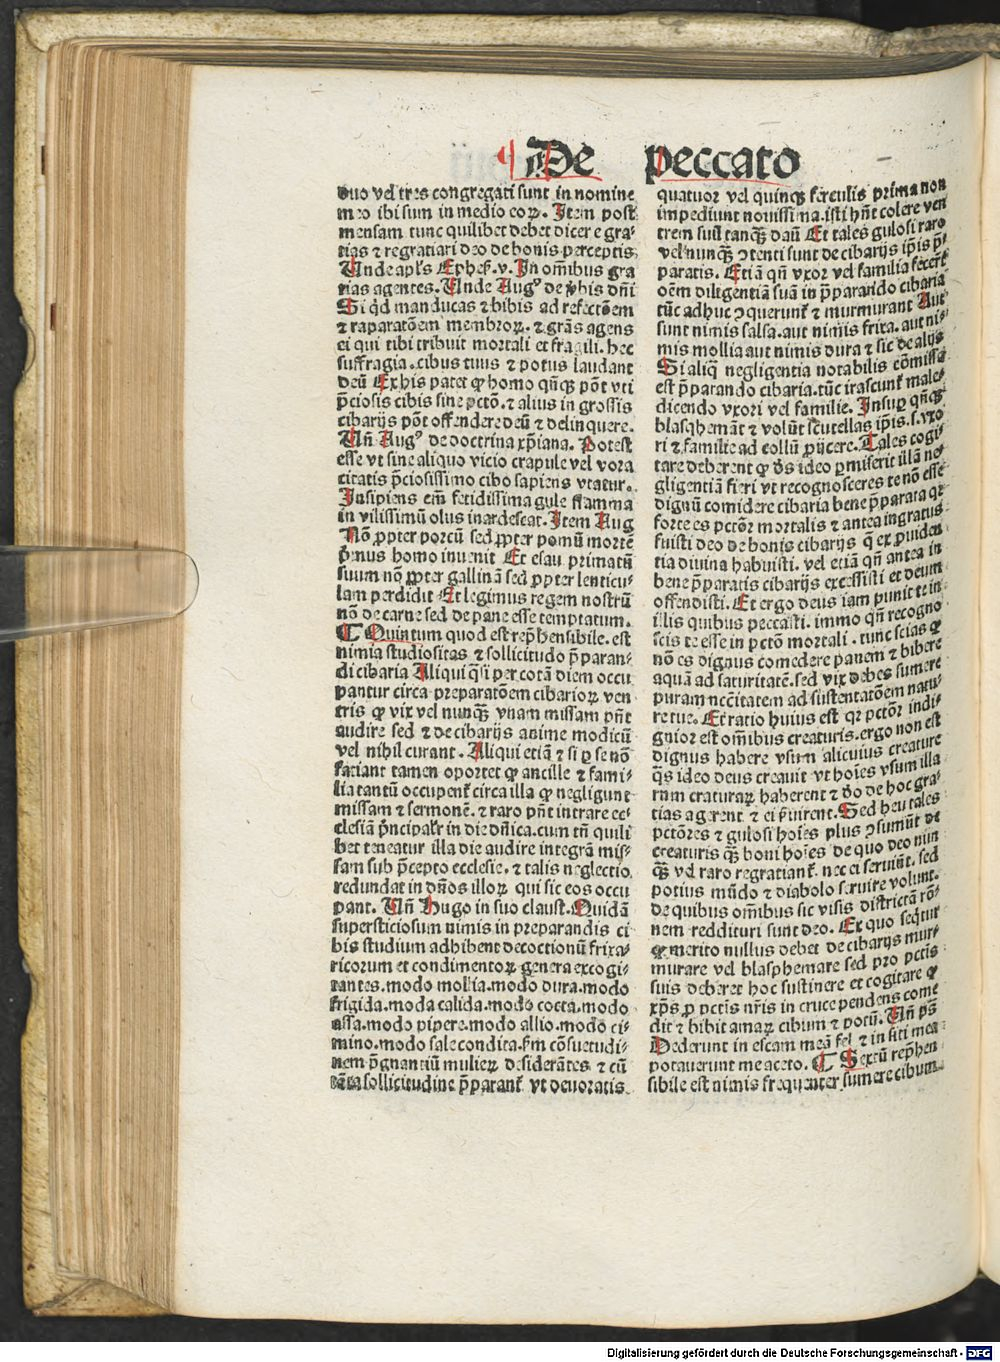 De peccato
duo vel tres congregati sunt in nomine
meo ibi sum in medio eoꝝ. Item post
mensam tunc quilibet debet dicere gra-
tias ⁊ regratiari deo de honis perceptis.
Unde apl's Ephes. v. In omnibus gra
tias agentes. Unde Augꝰ de ꝟbis dñi
Si qd manducas ⁊ bibis ad refectōem
⁊ raparatōem membroꝝ. ⁊ grās agens
ei qui tibi tribuit mortali et fragili. hec
suffragia. cibus tuus ⁊ potus laudant
deū Ex his patet ꝙ homo qñqꝫ pōt vti
p̄ciosis cibis sine pctō. ⁊ alius in grossis
cibarijs pōt offendere deū ⁊ delinquere.
Uñ Augꝰ de doctrina xp̄iana. Potest
esse vt sine aliquo vicio crapule vel vora
citatis p̄ciosissimo cibo sapiens vtatur.
Insipiens em̄ fetidissima gule flamma
in vilissimū olus inardescat. Item Aug
Nō ꝓpter porcū sed ꝓpter pomū mortē
p̄mus homo inuenit Et esau primatū
suum nō ꝓpter gallinā sed ꝓpter lenticu-
lam perdidit Et legimus regem nostrū
nō de carne sed de pane esse temptatum.
¶ Quintum quod est rep̄hensibile. est
nimia studiositas ⁊ sollicitudo p̄paran-
di cibaria Aliqui q̄si per totā diem occu
pantur circa preparatōem cibarioꝝ ven
tris ꝙ vix vel nunqꝫ vnam missam pn̄t
audire sed ⁊ de cibarijs anime modicū
vel nihil curant. Aliqui etiā ⁊ si ꝑ se nō
faciant tamen oportet ꝙ ancille ⁊ fami-
lia tantū occupent᷑ circa illa ꝙ negligunt
missam ⁊ sermonē. ⁊ raro pn̄t intrare ec-
clesiā p̄ncipalr̄ in die dn̄ica. cum tn̄ quili
bet teneatur illa die audire integrā mis-
sam sub p̄cepto ecclesie. ⁊ talis neglectio
redundat in dn̄os illoꝝ qui sic eos occu
pant. Uñ Hugo in suo claust. Quidā
supersticiosum nimis in preparandis ci
bis studium adhibent decoctionū frixa-
ricorum et condimentoꝝ genera excogi-
tantes. modo mollia. modo dura. modo
frigida. moda calida. modo cocta. modo
assa. modo pipere. modo allio. modo ci-
mino. modo sale condita. ẜm cōsuetudi-
nem p̄gnantiū mulieꝝ desiderātes ⁊ cū
tāta sollicitudine p̄parant᷑ vt deuoratis
quatuor vel quinqꝫ ferculis prima non
impediunt nouissima. isti hn̄t colere ven
trem suū tanqꝫ daū Et tales gulosi raro
vel nunqꝫ ꝯtenti sunt de cibarijs ip̄is p̄-
paratis. Etiā qn̄ vxor vel familia fecert᷑
oēm diligentiā suā in p̄parando cibaria
tūc adhuc ꝯquerunt᷑ ⁊ murmurant Aut
sunt nimis salsa. aut nimis frixa. aut ni-
mis mollia aut nimis dura ⁊ sic de alijs
Si aliq̄ negligentia notabilis cōmissa
est p̄parando cibaria. tūc irascunt᷑ male-
dicendo vxori vel familie. Insuꝑ qn̄qꝫ
blasphemāt ⁊ volūt scutellas ip̄is. s. vxo
ri ⁊ familie ad collū ꝓijcere. Tales cogi-
tare deberent ꝙ d̄s ideo ꝑmiserit illā ne-
gligentiā fieri vt recognosceres te nō esse
dignū comidere cibaria bene p̄parata qꝛ
forte es pctōr mortalis ⁊ antea ingratus
fuisti deo de bonis cibarijs q̄ ex ꝓuiden
tia diuina habuisti. vel etiā qn̄ antea in
bene p̄paratis cibarijs excessisti et deum
offendisti. Et ergo deus iam punit te in
illis quibus peccasti. immo qn̄ recogno
scis te esse in pctō mortali. tunc scias ꝙ
nō es dignus comedere panem ⁊ bibere
aquā ad saturitatē. sed vix debes sumere
puram nc̄citatem ad sustentatōem natu-
re tue. Et ratio huius est qꝛ pctōr indi-
gnior est om̄ibus creaturis. ergo non est
dignus habere vsum alicuius creature
q̄s ideo deus creauit vt hoīes vsum illa
rum craturaꝝ haberent ⁊ d̄o de hoc gra-
tias agerent ⁊ ei p̄uirent. Sed heu tales
pctōres ⁊ gulosi hoīes plus ꝯsumūt de
creaturis qꝫ boni hoīes de quo deo nun
qꝫ vd raro regratiant᷑. nec ei seruiūt. sed
potius mūdo ⁊ diabolo seruire volunt.
de quibus om̄ibus sic visis districtā rō-
nem reddituri sunt deo. Ex quo seq̄tur
ꝙ merito nullus debet de cibarijs mur-
murare vel blasphemare sed pro pctis
suis deberet hoc sustinere et cogitare ꝙ
xp̄s ꝓ pctis nr̄is in cruce pendens come
dit ⁊ bibit amaꝝ cibum ⁊ potū. Uñ ps̄
Dederunt in escam meā fel ⁊ in siti mea
potauerunt me aceto. ¶ Sextū rep̄hen
sibile est nimis frequenter sumere cibum.
Digitalisierung gefördert durch die Deutsche Forschungsgemeinschaft - DFG